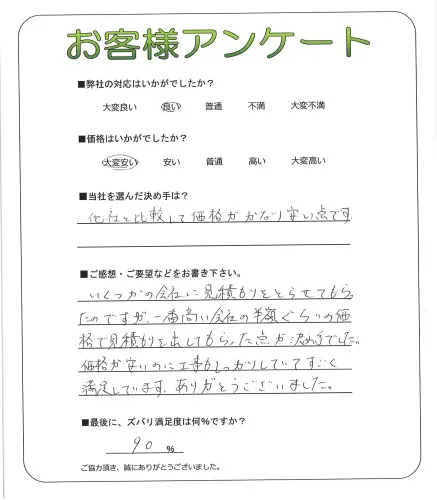 お客様アンケート
■弊社の対応はいかがでしたか？
大変良い 良い 普通 不満 大変不満
■価格はいかがでしたか？
大変安い 安い 普通 高い 大変高い
■当社を選んだ決め手は？
他社と比較して価格がかなり安い点です.
■ご感想・ご要望などをお書き下さい。
いくつかの会社に見積もりをとらせてもらっ
たのですが、一番高い会社の半額ぐらいの価
格で見積もりを出してもらった点が決め手でした。
価格が安いのに工事もしっかりしていてすごく
満足しています。ありがとうございました。
■最後に、ズバリ満足度は何％ですか？
90 ％
ご協力頂き、誠にありがとうございました。